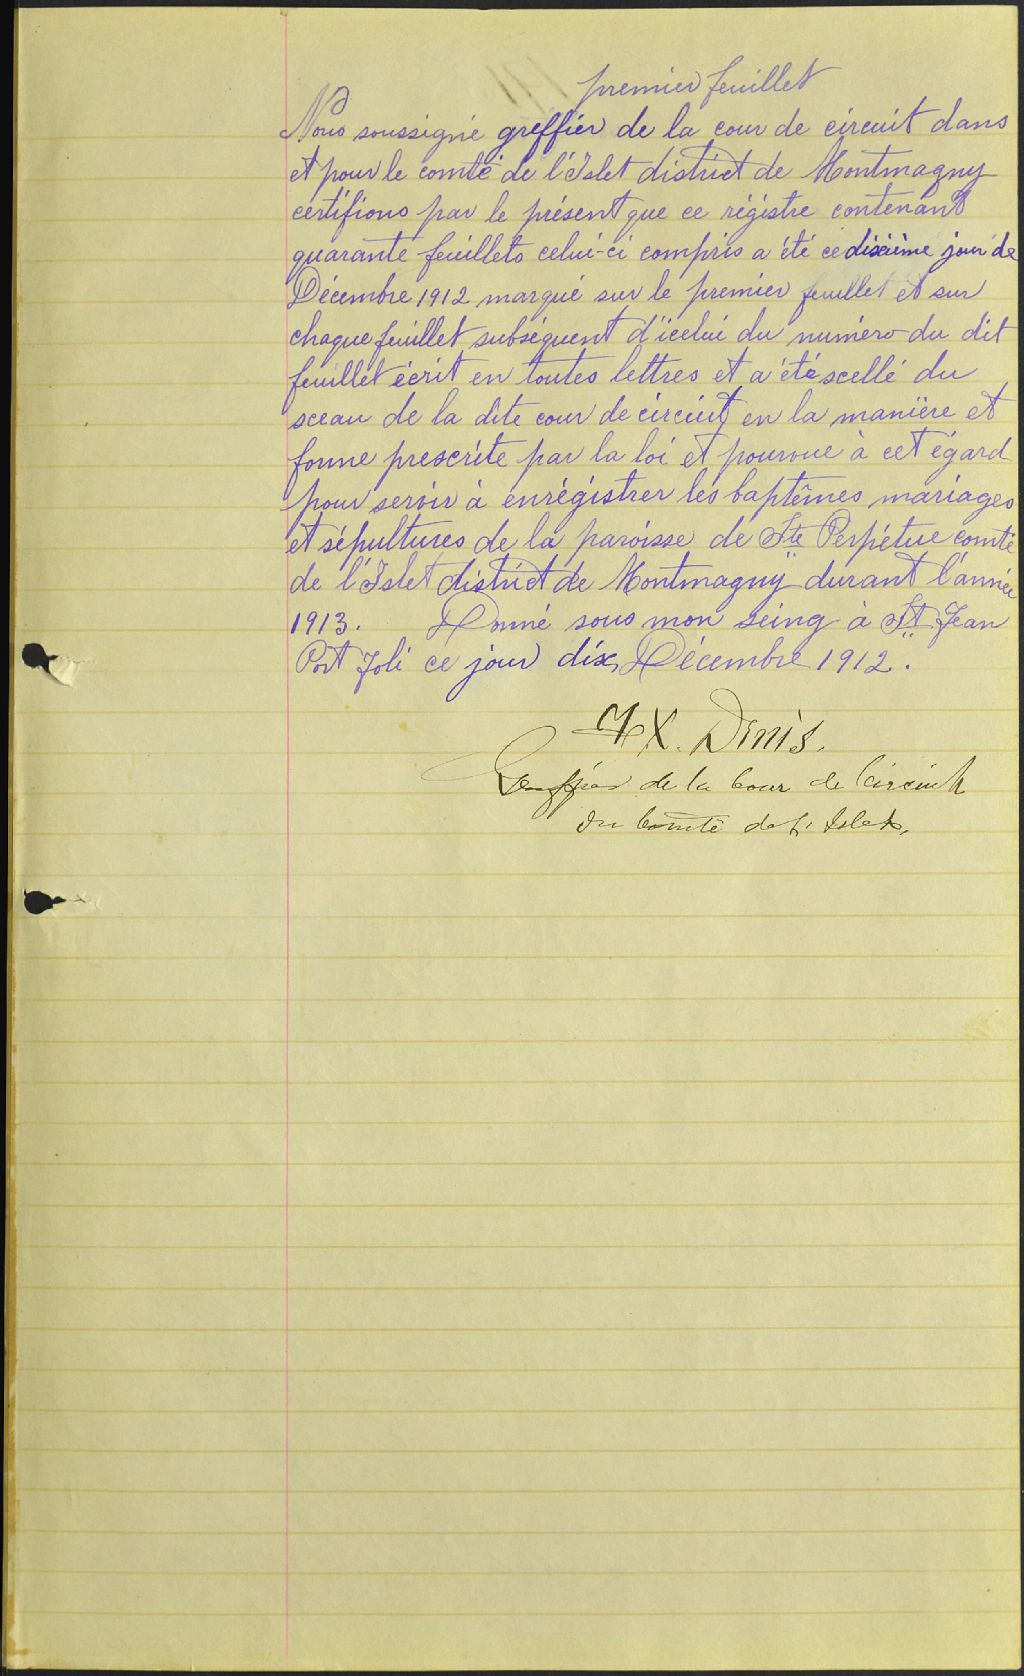 premier feuillet
Nous soussigné greffier de la cour de circuit dans
et pour le comté de l'Islet district de Montmagny
certifions par le présent que ce régistre contenant
quarante feuillets celui-ci compris a été ce dixième jour de
Décembre 1912 marqué sur le premier feuillet et sur
chaque feuillet subséquent d'icelui du numéro du dit
feuillet écrit en toutes lettres et a été scellé du
sceau de la dite cour de circuit, en la manière et
forme prescrite par la loi et pourvue à cet égard
pour servir à enrégistrer les baptêmes mariages
et sépultures de la paroisse de Ste Perpétue comté
de l'Islet district de Montmagny durant l'année
1913. Donné sous mon seing à St Jean
Port Joli ce jour dix Décembre 1912.
FX. Denis.
Greffier de la Cour de Circuit
du Comté de L'Islet.